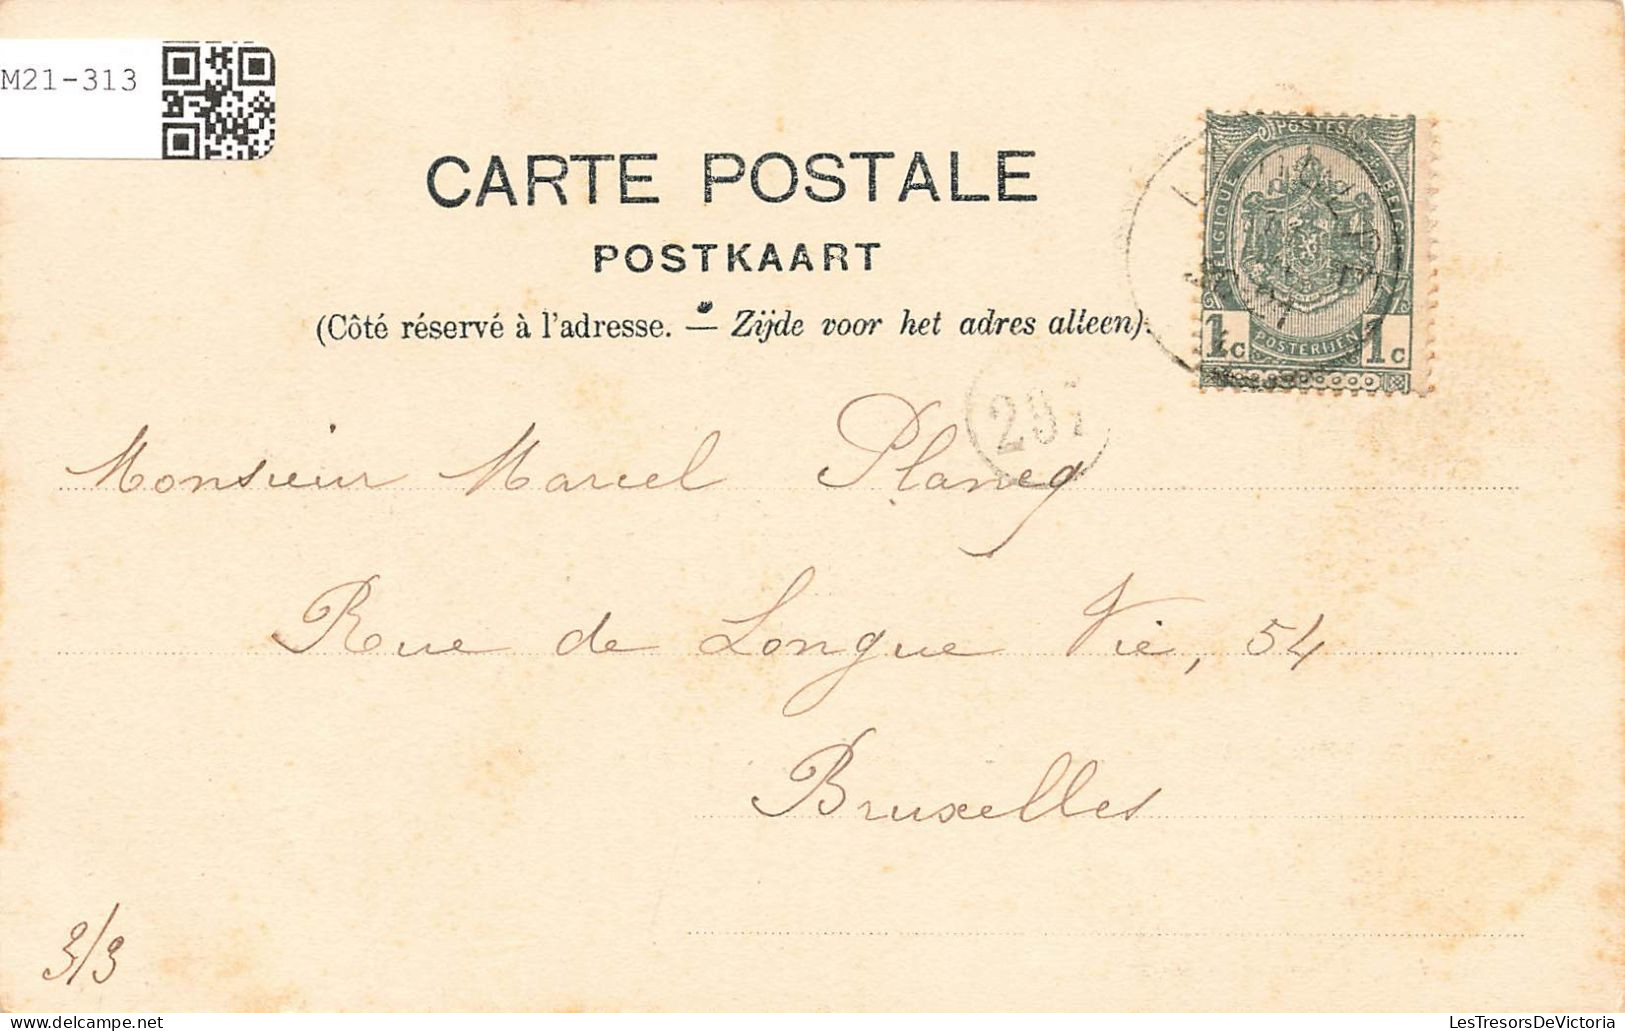 M21-313
CARTE POSTALE
POSTKAART
(Côté réservé à l'adresse. — Zijde voor het adres alleen).
POSTES
BELGIQUE
BELGIË
1c POSTERIJEN 1c
Monsieur Marcel Planeq
Rue de Longue Vie, 54
Bruxelles
3/3
LesTresorsDeVictoria